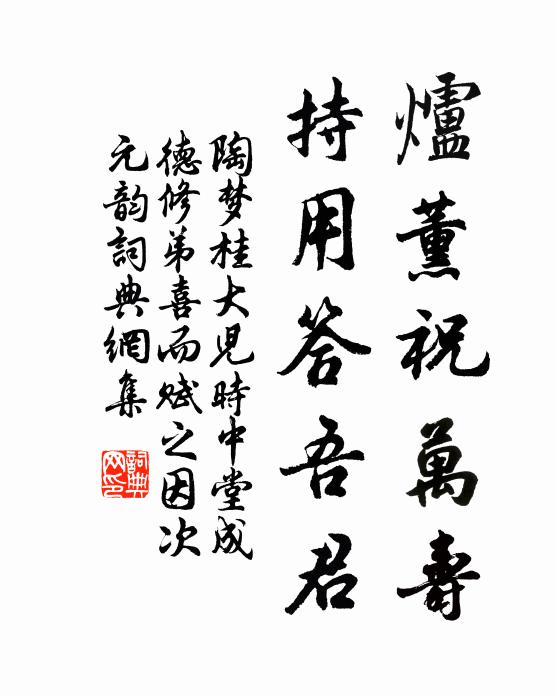 爐薰祝萬壽
持用答吾君
陶梦桂大児時中堂成
德修弟喜而赋之因次
元韵詞典網集
詞典网印